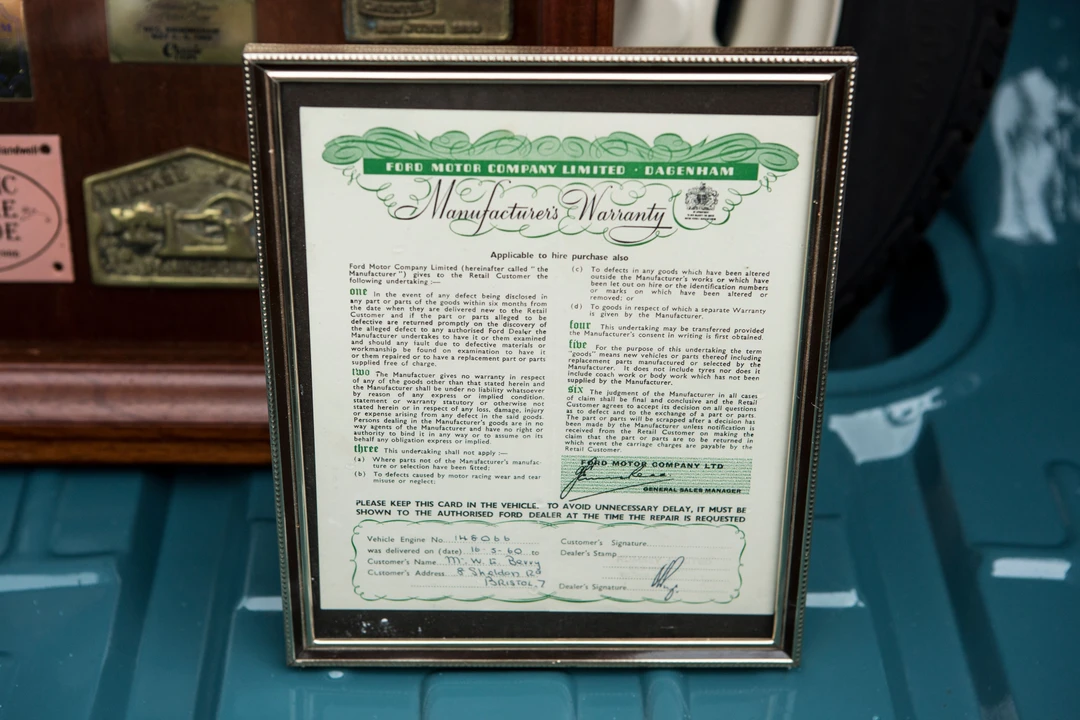 FORD MOTOR COMPANY LIMITED · DAGENHAM
Manufacturer's Warranty
Applicable to hire purchase also
Ford Motor Company Limited (hereinafter called "the
Manufacturer") gives to the Retail Customer the
following undertaking :—
one In the event of any defect being disclosed in
any part or parts of the goods within six months from
the date when they are delivered new to the Retail
Customer and if the part or parts alleged to be
defective are returned promptly on the discovery of
the alleged defect to any authorised Ford Dealer the
Manufacturer undertakes to have it or them examined
and should any fault due to defective materials or
workmanship be found on examination to have it
or them repaired or to have a replacement part or parts
supplied free of charge.
two The Manufactuer gives no warranty in respect
of any of the goods other than that stated herein and
the Manufacturer shall be under no liability whatsoever
by reason of any express or implied condition,
statement or warranty statutory or otherwise not
stated herein or in respect of any loss, damage, injury
or expense arising from any defect in the said goods.
Persons dealing in the Manufacturer's goods are in no
way agents of the Manufacturer and have no right or
authority to bind it in any way or to assume on its
behalf any obligation express or implied.
three This undertaking shall not apply :—
(a) Where parts not of the Manufacturer's manufac-
ture or selection have been fitted;
(b) To defects caused by motor racing wear and tear
misuse or neglect;
(c) To defects in any goods which have been altered
outside the Manufacturer's works or which have
been let out on hire or the identification numbers
or marks on which have been altered or
removed; or
(d) To goods in respect of which a separate Warranty
is given by the Manufacturer.
four This undertaking may be transferred provided
the Manufacturer's consent in writing is first obtained.
five For the purpose of this undertaking the term
"goods" means new vehicles or parts thereof including
replacement parts manufactured or selected by the
Manufacturer. It does not include tyres nor does it
include coach work or body work which has not been
supplied by the Manufacturer.
six The judgment of the Manufacturer in all cases
of claim shall be final and conclusive and the Retail
Customer agrees to accept its decision on all questions
as to defect and to the exchange of a part or parts.
The part or parts will be scrapped after a decision has
been made by the Manufacturer unless notification is
received from the Retail Customer on making the
claim that the part or parts are to be returned in
which event the carriage charges are payable by the
Retail Customer.
FORD MOTOR COMPANY LTD
GENERAL SALES MANAGER
PLEASE KEEP THIS CARD IN THE VEHICLE. TO AVOID UNNECESSARY DELAY, IT MUST BE
SHOWN TO THE AUTHORISED FORD DEALER AT THE TIME THE REPAIR IS REQUESTED
Vehicle Engine No. 148066
was delivered on (date) 16·5·60 to
Customer's Name Mr. W. G. Berry
Customer's Address 8 Sheldon Rd
BRISTOL.7
Customer's Signature
Dealer's Stamp
Dealer's Signature